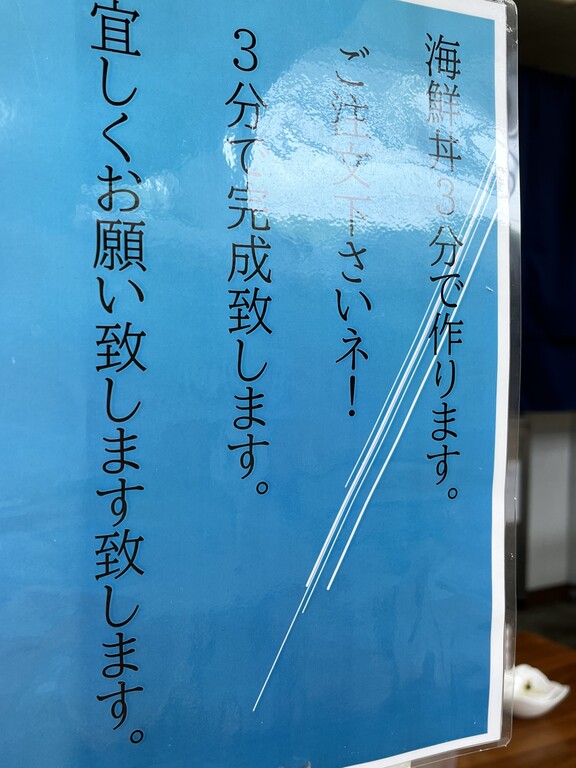 海鮮丼3分で作ります。
ご注文下さいネ!
3分で完成致します。
宜しくお願い致します致します。